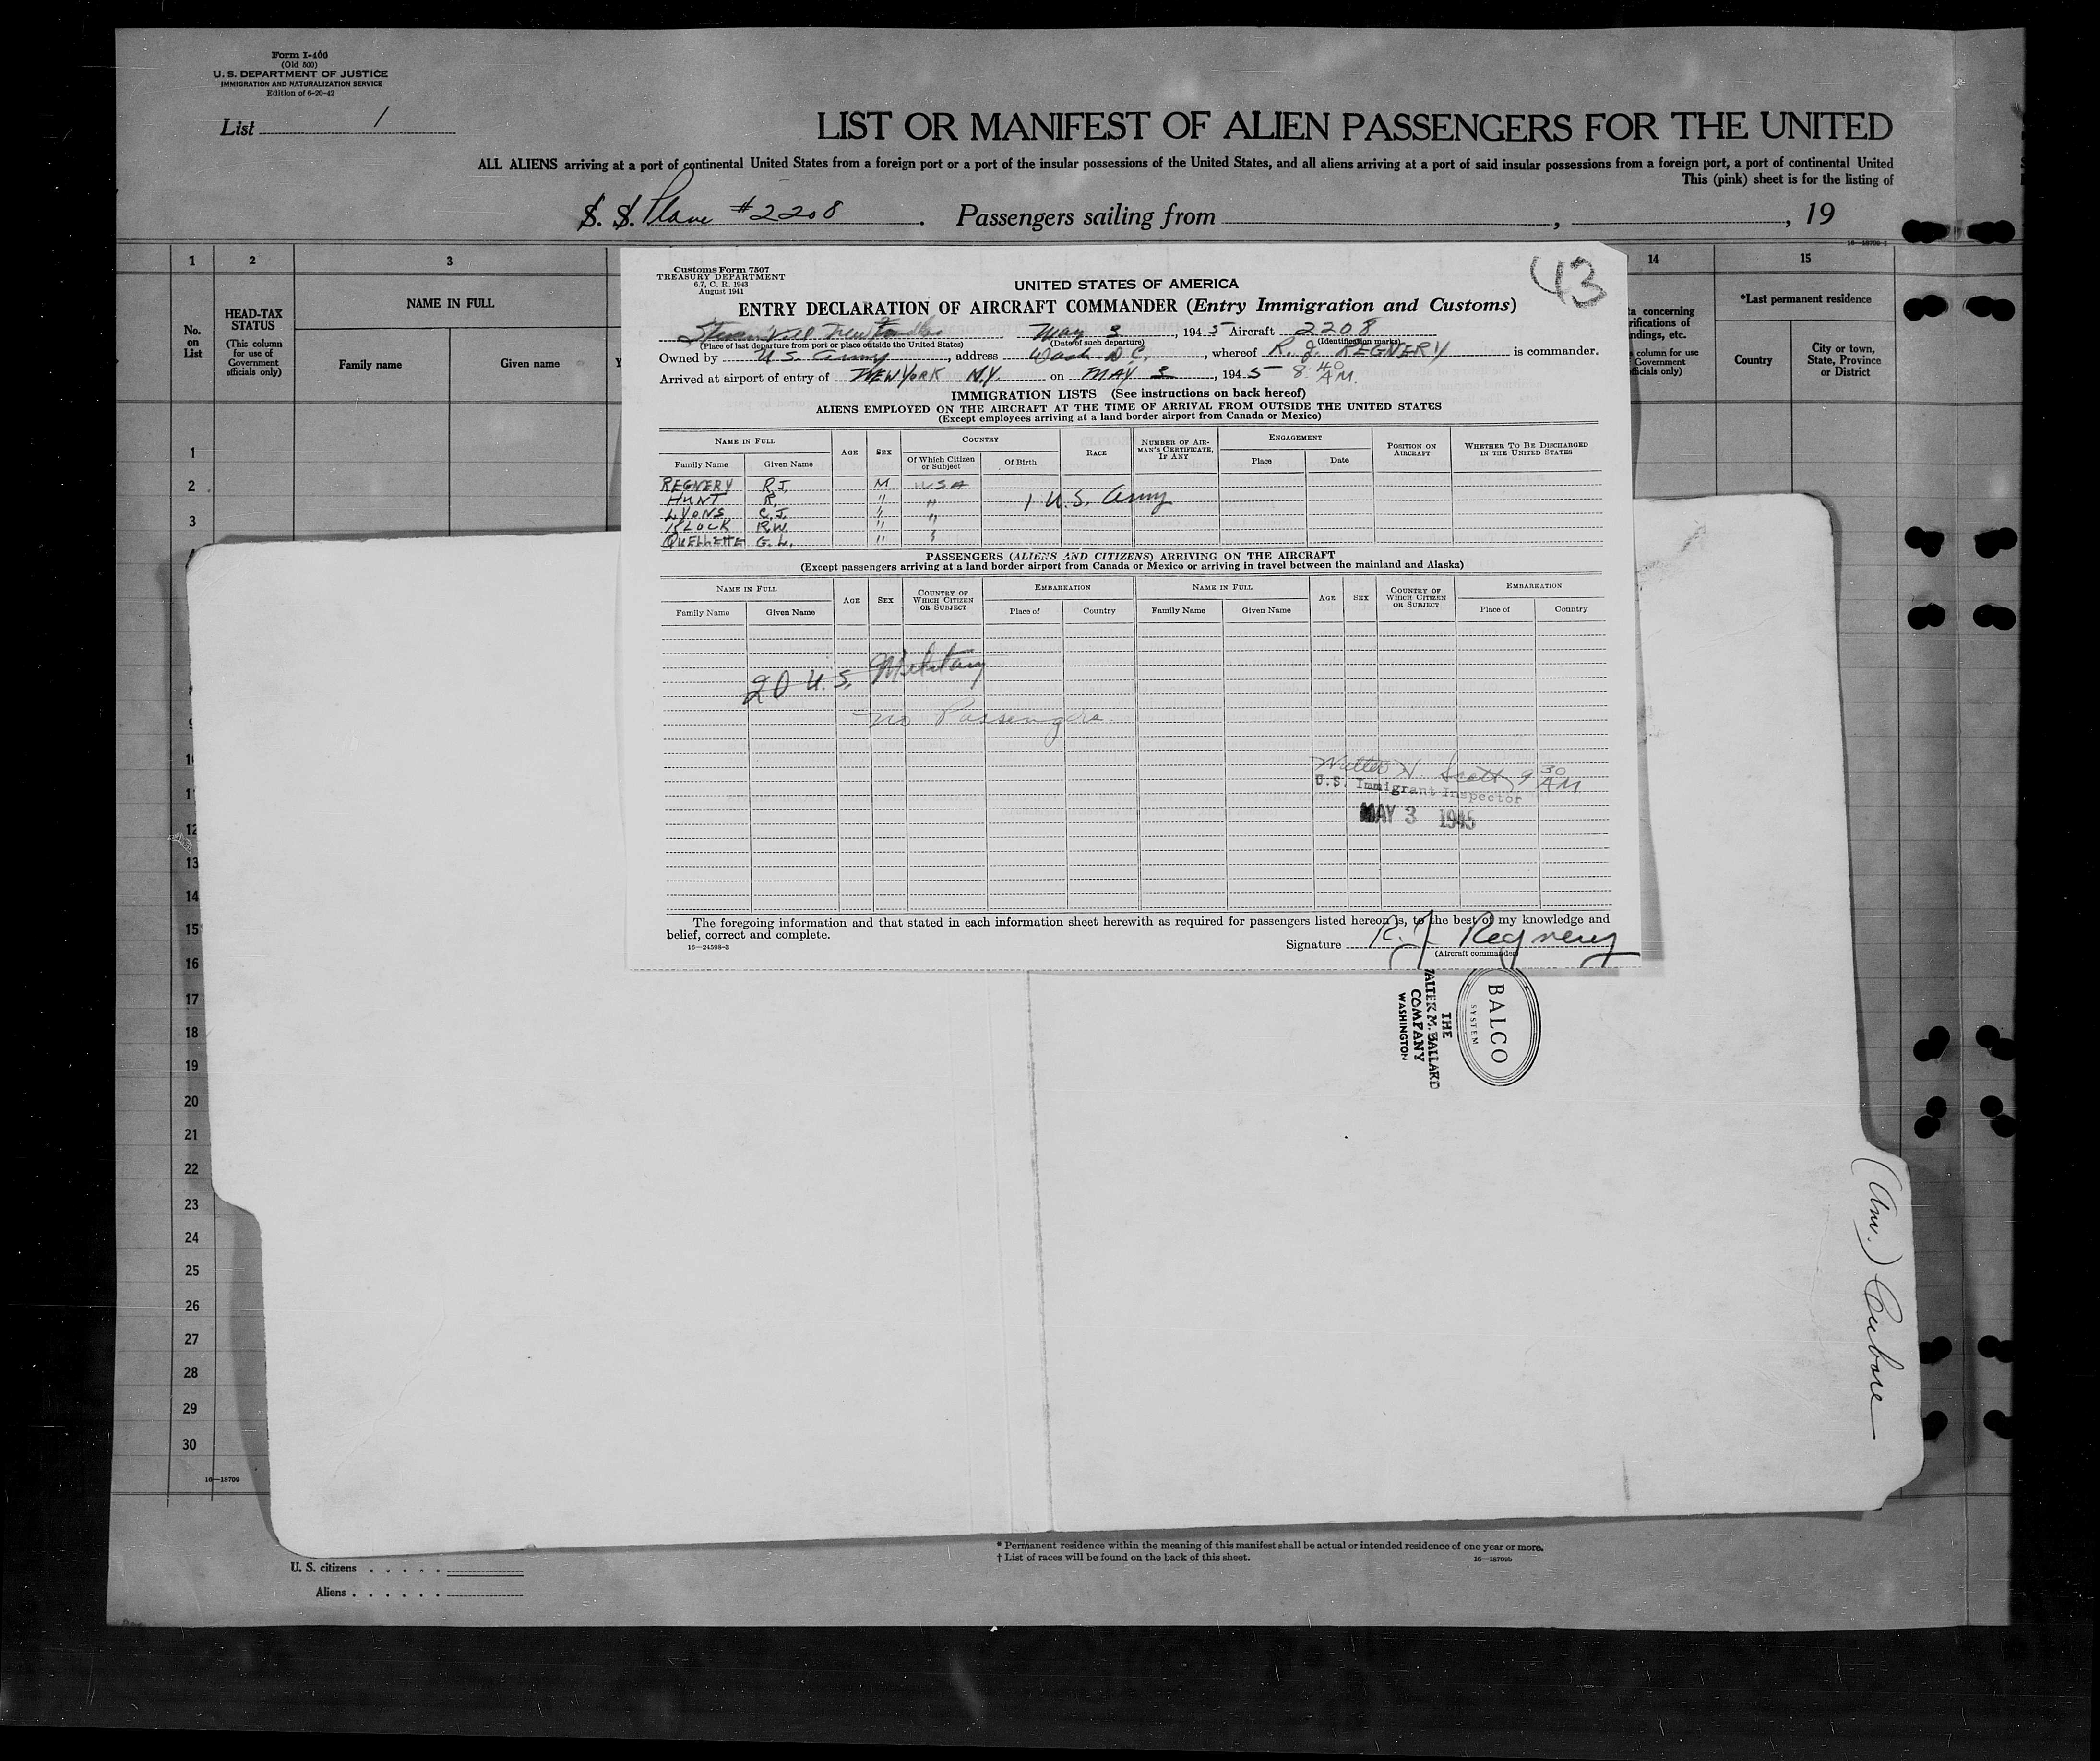 Form I-400
(Old 500)
U. S. DEPARTMENT OF JUSTICE
IMMIGRATION AND NATURALIZATION SERVICE
Edition of 6-20-42
List 1
LIST OR MANIFEST OF ALIEN PASSENGERS FOR THE UNITED
ALL ALIENS arriving at a port of continental United States from a foreign port or a port of the insular possessions of the United States, and all aliens arriving at a port of said insular possessions from a foreign port, a port of continental United
This (pink) sheet is for the listing of
S. S. Plane #2208. Passengers sailing from , , 19
1 2 3 14 15
No. on List
HEAD-TAX STATUS
(This column for use of Government officials only)
NAME IN FULL
Family name Given name
*Last permanent residence
Country City or town, State, Province or District
column for use
Customs Form 7507
TREASURY DEPARTMENT
6.7, C. R. 1943
August 1941
43
UNITED STATES OF AMERICA
ENTRY DECLARATION OF AIRCRAFT COMMANDER (Entry Immigration and Customs)
May 3, 1945 Aircraft 2208
(Place of last departure from port or place outside the United States) (Date of such departure) (Identification marks)
Owned by U.S. Army, address Wash D.C., whereof R. J. REGNERY is commander.
Arrived at airport of entry of NEW YORK N.Y. on MAY 3, 1945 8 40 AM.
IMMIGRATION LISTS (See instructions on back hereof)
ALIENS EMPLOYED ON THE AIRCRAFT AT THE TIME OF ARRIVAL FROM OUTSIDE THE UNITED STATES
(Except employees arriving at a land border airport from Canada or Mexico)
NAME IN FULL AGE SEX COUNTRY RACE NUMBER OF AIRMAN'S CERTIFICATE, IF ANY ENGAGEMENT POSITION ON AIRCRAFT WHETHER TO BE DISCHARGED IN THE UNITED STATES
Family Name Given Name Of Which Citizen or Subject Of Birth Place Date
REGNERY R.J. M USA
HUNT R. " " 1 U.S. Army
LYONS C.J. " "
KLOCK R.W. "
OUELLETTE G.L. "
PASSENGERS (ALIENS AND CITIZENS) ARRIVING ON THE AIRCRAFT
(Except passengers arriving at a land border airport from Canada or Mexico or arriving in travel between the mainland and Alaska)
NAME IN FULL AGE SEX COUNTRY OF WHICH CITIZEN OR SUBJECT EMBARKATION NAME IN FULL AGE SEX COUNTRY OF WHICH CITIZEN OR SUBJECT EMBARKATION
Family Name Given Name Place of Country Family Name Given Name Place of Country
20 U.S. Military
No Passengers.
Walter N. Scott 9 30 AM
U.S. Immigrant Inspector
MAY 3 1945
The foregoing information and that stated in each information sheet herewith as required for passengers listed hereon is, to the best of my knowledge and
belief, correct and complete.
16—24598-3
Signature R. J. Regnery
(Aircraft commander)
BALCO
SYSTEM
THE
WALTER M. BALLARD
COMPANY
WASHINGTON
1
2
3
12
13
14
15
16
17
18
19
20
21
22
23
24
25
26
27
28
29
30
16—18709
* Permanent residence within the meaning of this manifest shall be actual or intended residence of one year or more.
† List of races will be found on the back of this sheet.
16—18709b
U. S. citizens
Aliens